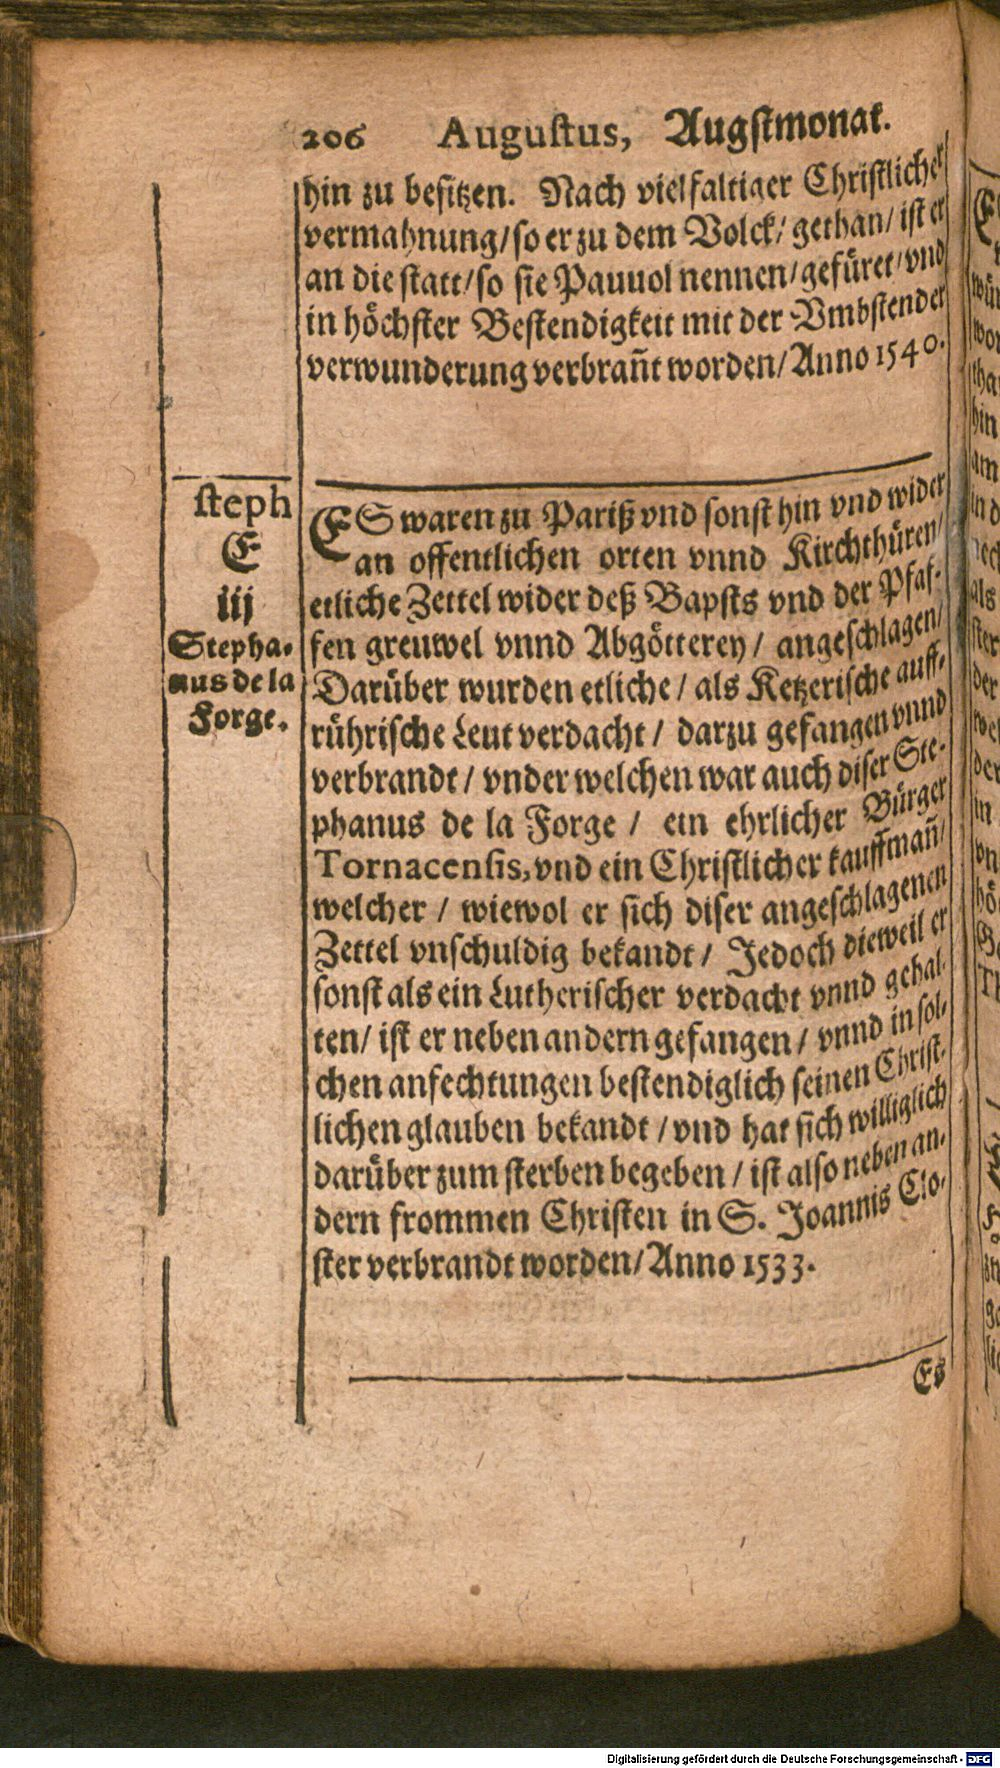 206 Augustus, Augstmonat.
hin zu besitzen. Nach vielfaltiger Christlicher
vermahnung/ so er zu dem Volck/ gethan/ ist er
an die statt/ so sie Pauuol nennen/ gefüret/ vnd
in höchster Bestendigkeit mit der Vmbstender
verwunderung verbrañt worden/ Anno 1540.
steph
E
iij
Stepha-
nus de la
Forge.
ES waren zu Pariß vnd sonst hin vnd wider
an offentlichen orten vnnd Kirchthüren/
etliche Zettel wider deß Bapsts vnd der Pfaf-
fen greuwel vnnd Abgötterey/ angeschlagen/
Darüber wurden etliche/ als Ketzerische auff-
rührische Leut verdacht/ darzu gefangen vnnd
verbrandt/ vnder welchen war auch diser Ste-
phanus de la Forge/ ein ehrlicher Bürger
Tornacensis, vnd ein Christlicher kauffmañ/
welcher/ wiewol er sich diser angeschlagenen
Zettel vnschuldig bekandt/ Jedoch dieweil er
sonst als ein Lutherischer verdacht vnnd gehal-
ten/ ist er neben andern gefangen/ vnnd in sol-
chen anfechtungen bestendiglich seinen Christ-
lichen glauben bekandt/ vnd hat sich williglich
darüber zum sterben begeben/ ist also neben an-
dern frommen Christen in S. Joannis Clo-
ster verbrandt worden/ Anno 1533.
Es
Digitalisierung gefördert durch die Deutsche Forschungsgemeinschaft - DFG